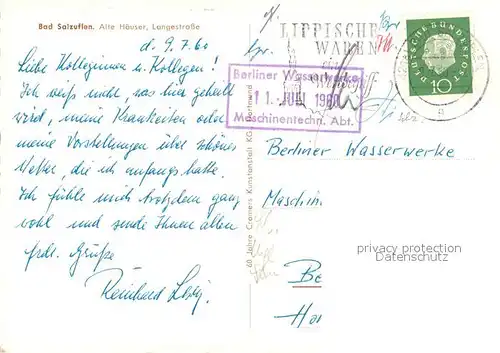 Bad Salzuflen. Alte Häuser, Langestraße
d. 9.7.60
Liebe Kolleginnen u. Kollegen!
Ich weiß nicht, was hier geheilt
wird, meine Krankheiten oder
meine Vorstellungen über schönes
Wetter, die ich anfangs hatte.
Ich fühle mich trotzdem ganz
wohl und sende Ihnen allen
frdl. Grüße
Reinhard
60 Jahre Cramers Kunstanstalt KG, Dortmund
LIPPISCHE
WAREN
Berliner Wasserwerke
11. JULI 1960
Maschinentechn. Abt.
DEUTSCHE BUNDESPOST
10
Berliner Wasserwerke
Maschin
privacy protection
Datenschutz
Be
Ha